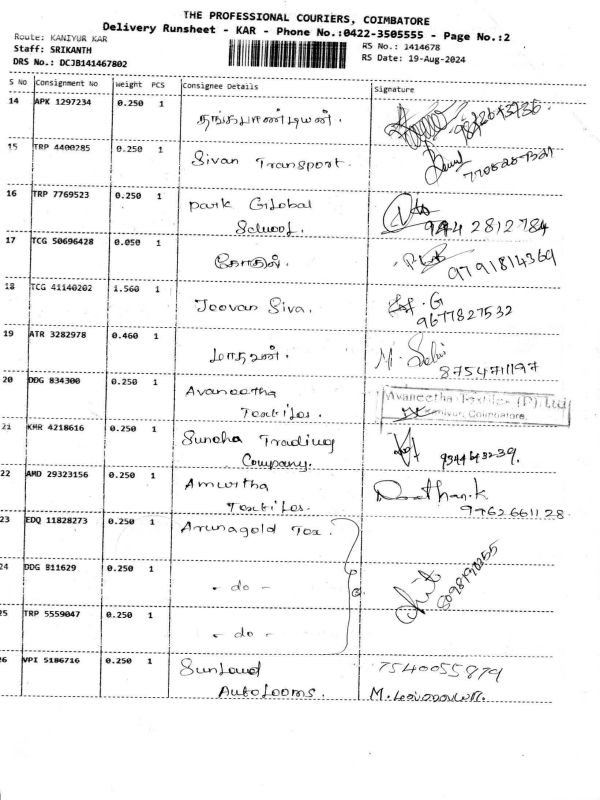 THE PROFESSIONAL COURIERS, COIMBATORE
Delivery Runsheet - KAR - Phone No.:0422-3505555 - Page No.:2
Route: KANIYUR KAR
Staff: SRIKANTH
DRS No.: DCJB141467802
RS No.: 1414678
RS Date: 19-Aug-2024
S No Consignment No Weight PCS Consignee Details Signature
14 APK 1297234 0.250 1 தங்கபாண்டியன்.
15 TRP 4400285 0.250 1 Sivan Transport.
16 TRP 7769523 0.250 1 park Global
School. 9442812784
17 TCG 50696428 0.050 1 கோகுல். 9791814369
18 TCG 41140202 1.560 1 Jeevan Siva. G
9677827532
19 ATR 3282978 0.460 1 மாதவன். M.
8754711197
20 DDG 834300 0.250 1 Avaneetha Avaneetha Textiles (P) Ltd
Textiles. Kaniyur, Coimbatore.
21 KMR 4218616 0.250 1 Suneha Trading
Company. 9344643239.
22 AMD 29323156 0.250 1 Amirtha
Textiles. 9762661128
23 EDQ 11828273 0.250 1 Arunagold Tex.
24 DDG 811629 0.250 1 - do - 8098170255
25 TRP 5559047 0.250 1 - do -
26 VPI 5186716 0.250 1 Sunland 7540055879
Autolooms. M.